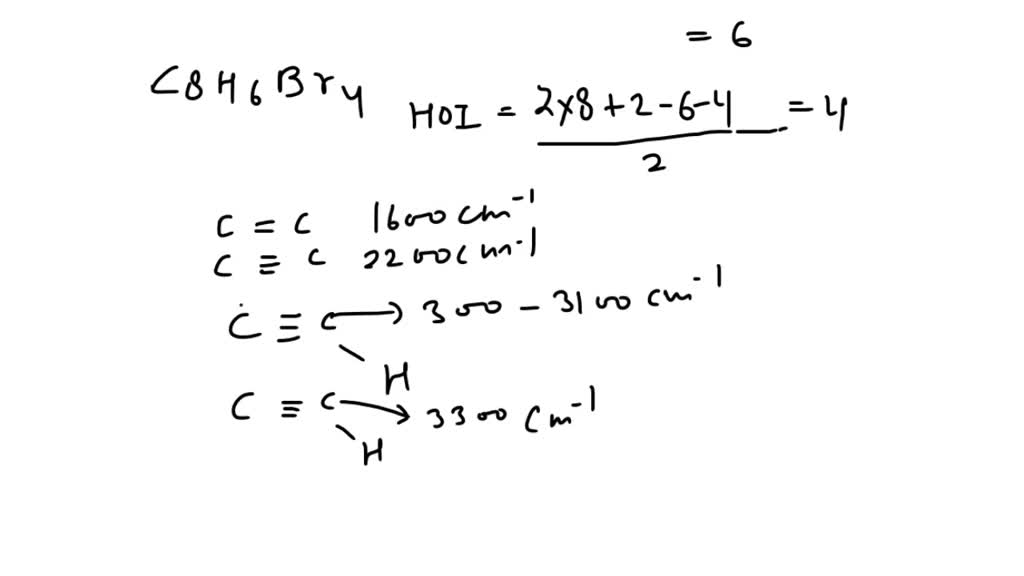 = 6
C8H6Br4 HOI = 2x8+2-6-4 / 2 = 4
C = C 1600 cm-1
C ≡ C 2200 cm-1
C ≡ C → 300 - 3100 cm-1
H
C ≡ C → 3300 cm-1
H